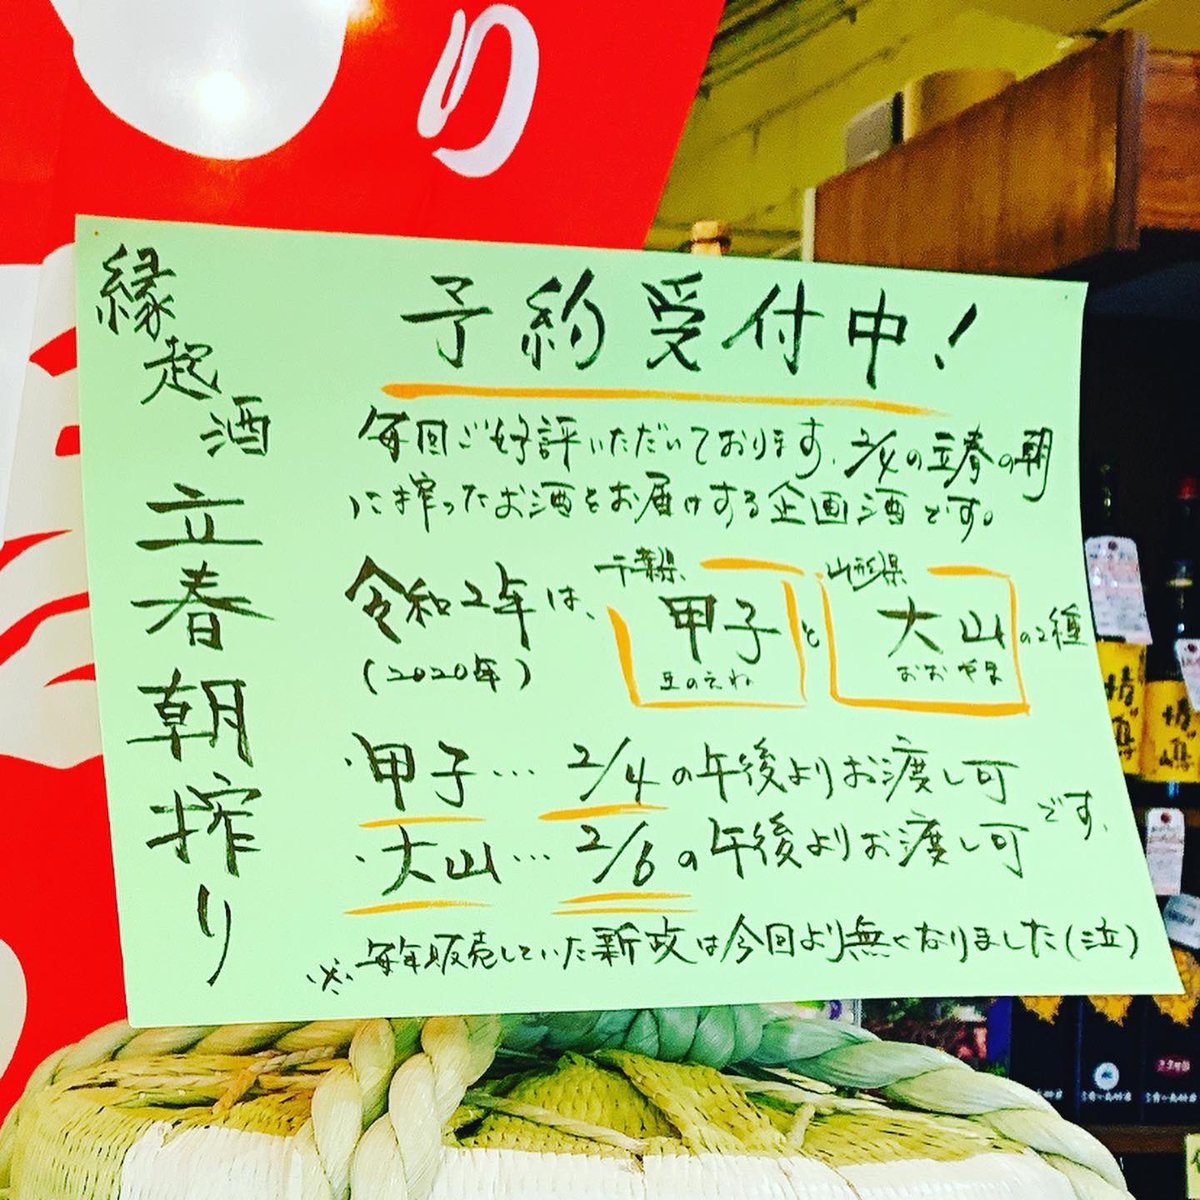 り
縁起酒
立春朝搾り
予約受付中!
毎回ご好評いただいております、2/4の立春の朝
に搾ったお酒をお届けする企画酒です。
令和2年は、千葉県、甲子と山形県大山の2種
(2020年) きのえね おおやま
・甲子… 2/4の午後よりお渡し可
・大山… 2/6の午後よりお渡し可です。
※、毎年販売していた新政は今回より無くなりました(泣)